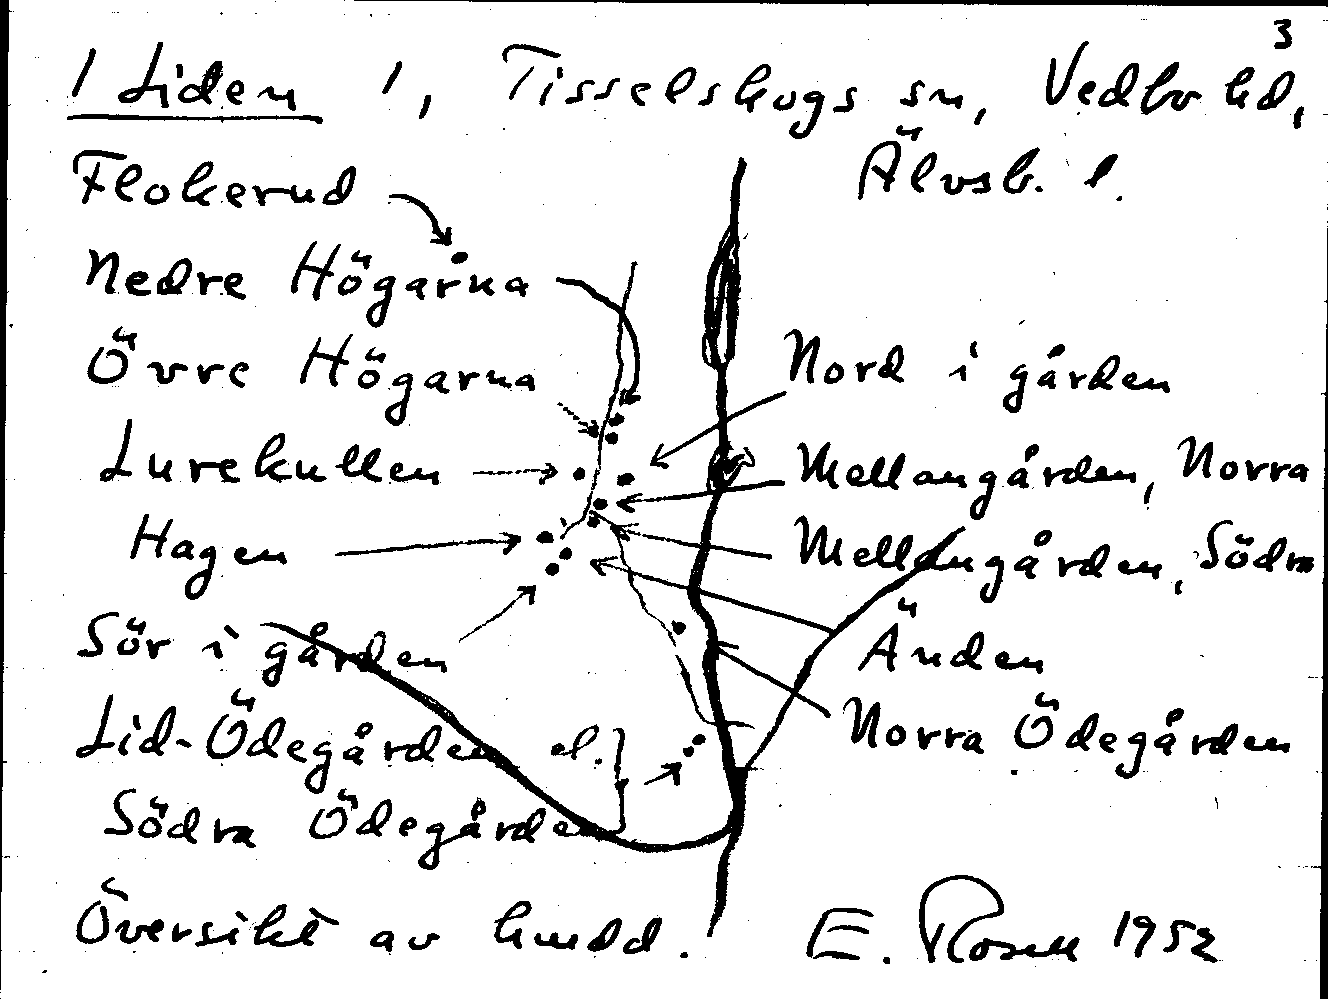 3
1 Liden 1, Tisselskogs sn, Vedbo hd,
Älvsb. l.
Flokerud
Nedre Högarna
Övre Högarna
Nord i gården
Lurekullen
Mellangården, Norra
Hagen
Mellangården, Södra
Sör i gården
Änden
Lid-Ödegården el.
Norra Ödegården
Södra Ödegården
Översikt av hmdd.
E. Rosell 1952